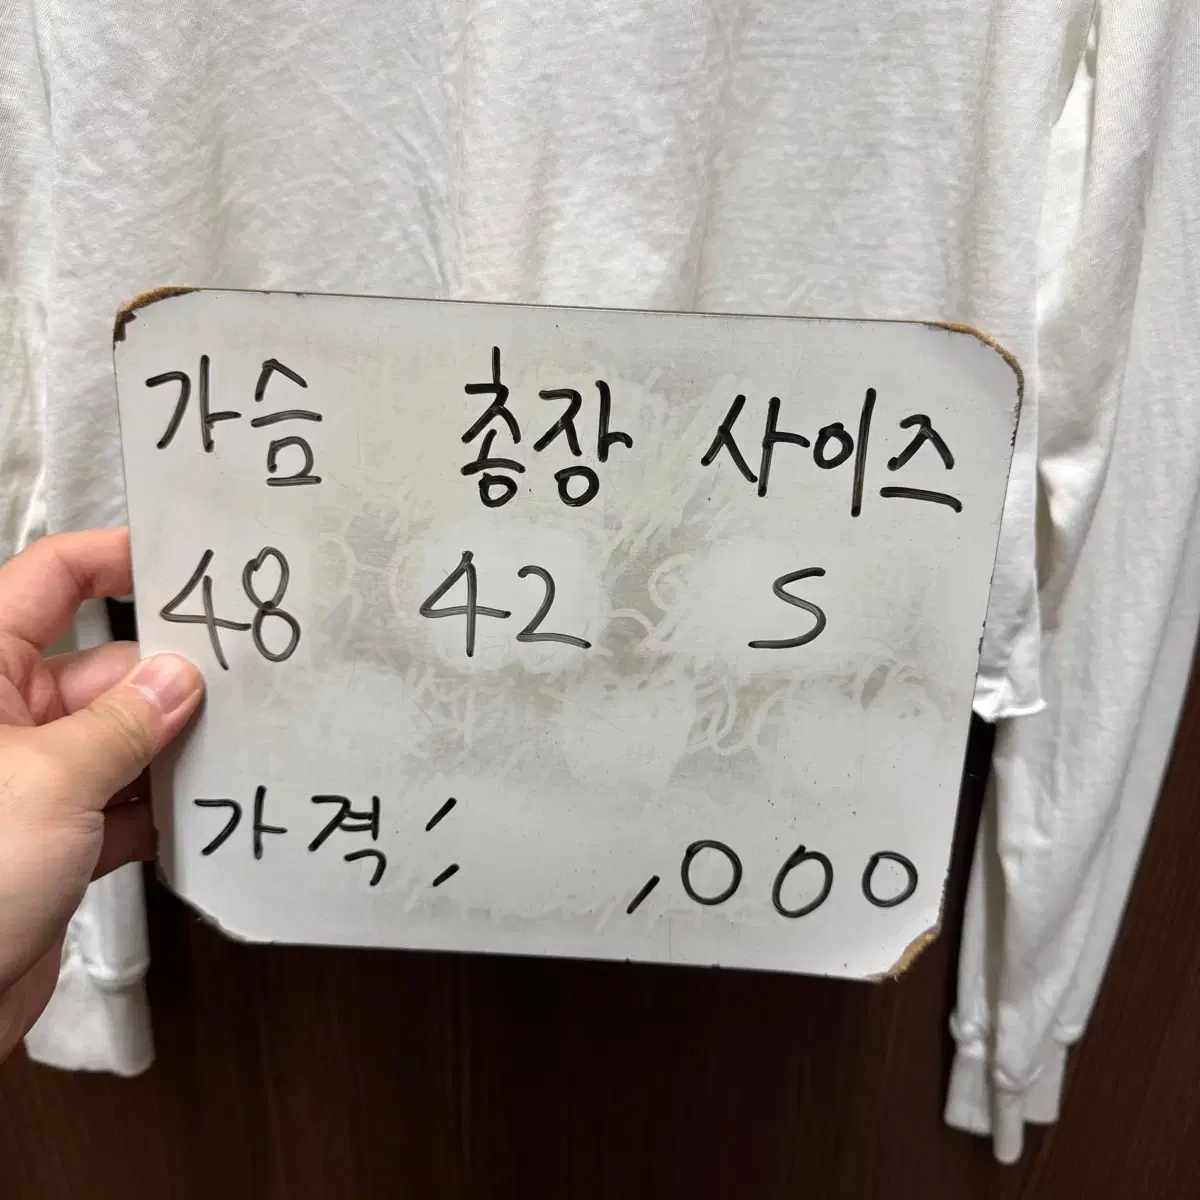 가슴 총장 사이즈
48 42 S
가격; ,000